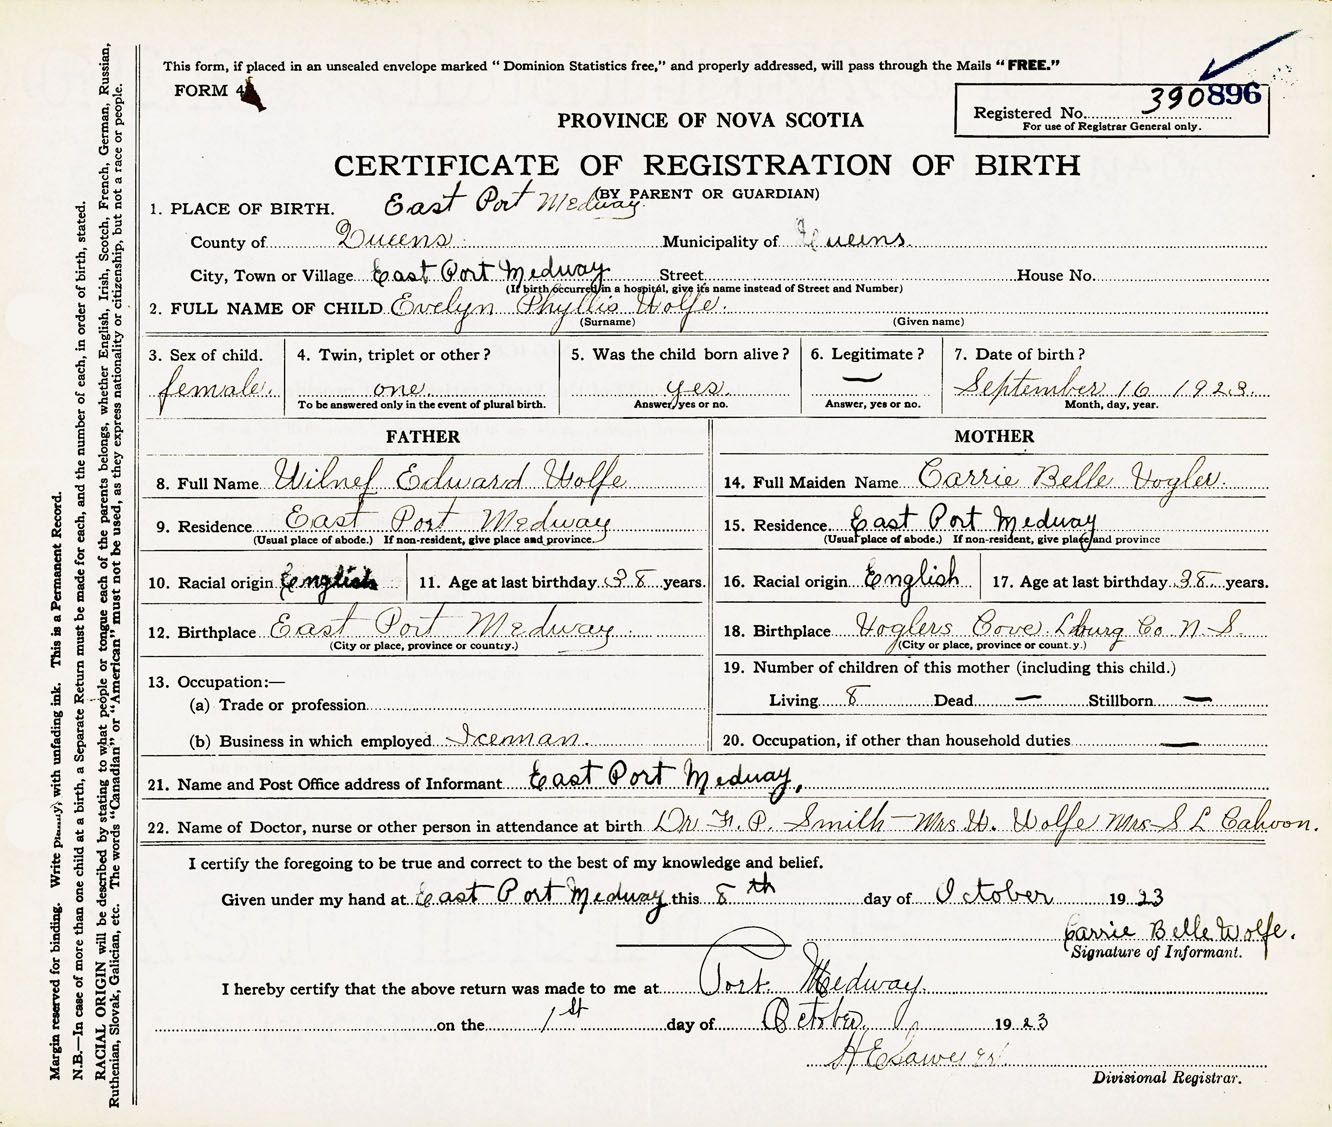 This form, if placed in an unsealed envelope marked “Dominion Statistics free,” and properly addressed, will pass through the Mails “FREE.”
FORM 4
390896
Registered No.
For use of Registrar General only.
PROVINCE OF NOVA SCOTIA
CERTIFICATE OF REGISTRATION OF BIRTH
(BY PARENT OR GUARDIAN)
1. PLACE OF BIRTH. East Port Medway
County of Queens Municipality of Queens
City, Town or Village East Port Medway Street House No.
(If birth occurred in a hospital, give its name instead of Street and Number)
2. FULL NAME OF CHILD Evelyn Phyllis Wolfe.
(Surname) (Given name)
3. Sex of child. 4. Twin, triplet or other? 5. Was the child born alive? 6. Legitimate? 7. Date of birth?
female. one. yes. — September 16 1923.
To be answered only in the event of plural birth. Answer, yes or no. Answer, yes or no. Month, day, year.
FATHER MOTHER
8. Full Name Edward Wolfe 14. Full Maiden Name Carrie Belle Vogler.
9. Residence East Port Medway 15. Residence. East Port Medway
(Usual place of abode.) If non-resident, give place and province.) (Usual place of abode.) If non-resident, give place and province
10. Racial origin English 11. Age at last birthday 38 years. 16. Racial origin English 17. Age at last birthday 38 years.
12. Birthplace East Port Medway. 18. Birthplace Voglers Cove. Lburg Co. N. S.
(City or place, province or country.) (City or place, province or country.)
19. Number of children of this mother (including this child.)
13. Occupation:—
(a) Trade or profession Living 8 Dead — Stillborn —
(b) Business in which employed Iceman. 20. Occupation, if other than household duties —
21. Name and Post Office address of Informant East Port Medway,
22. Name of Doctor, nurse or other person in attendance at birth Dr F. P. Smith — Mrs W. Wolfe Mrs S L Cahoon.
I certify the foregoing to be true and correct to the best of my knowledge and belief.
Given under my hand at East Port Medway this 8th day of October 1923
Carrie Belle Wolfe.
Signature of Informant.
I hereby certify that the above return was made to me at Port Medway.
on the 1st day of October 1923
H E
Divisional Registrar.
Margin reserved for binding. Write with unfading ink. This is a Permanent Record.
N.B.—In case of more than one child at a birth, a Separate Return must be made for each, and the number of each, in order of birth, stated.
RACIAL ORIGIN will be described by stating to what people or tongue each of the parents belongs, whether English, Irish, Scotch, French, German, Russian,
Ruthenian, Slovak, Galician, etc. The words “Canadian” or “American” must not be used, as they express nationality or citizenship, but not a race or people.